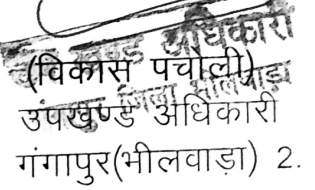 अधिकारी
(विकास पंचोली)
उपखण्ड अधिकारी
गंगापुर(भीलवाड़ा) 2.